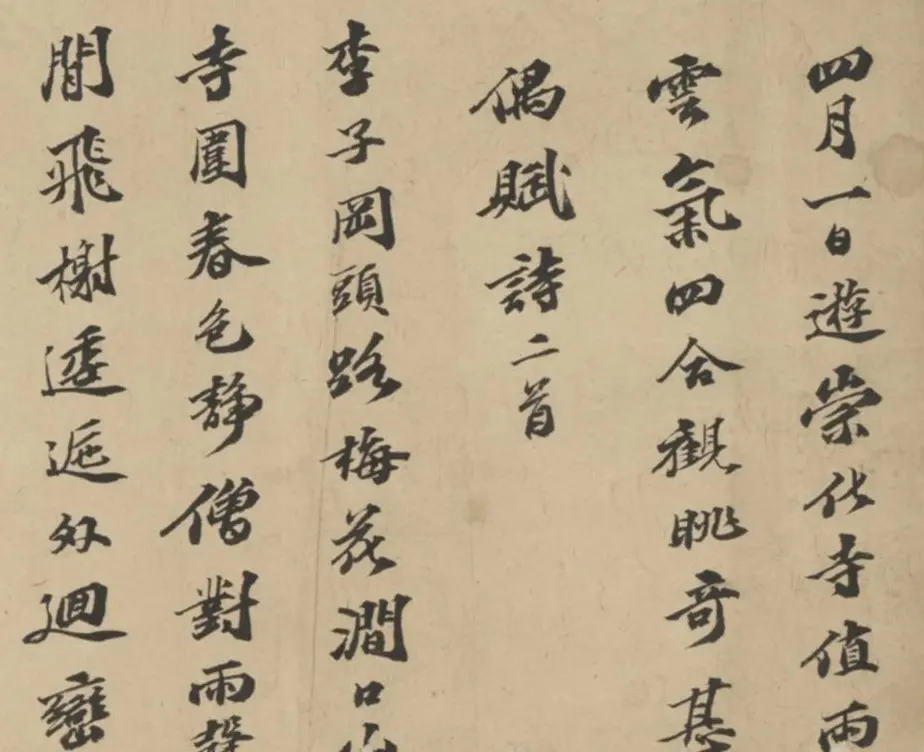 四月一日遊崇化寺值雨
雲氣四合觀眺奇甚
偶賦詩二首
李子岡頭路梅花澗口
寺圍春色靜僧對雨聲
閒飛榭逶迤外迴巒